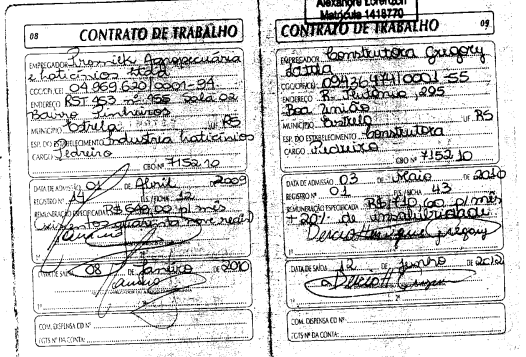 08 CONTRATO DE TRABALHO
EMPREGADOR Promilk Agropecuária
e laticínios Ltda
CGC/CPF/CEI 04.969.620/0001-94
ENDEREÇO RST 453 nº 955 sala 02
Bairro Pinheiros
MUNICÍPIO Estrela UF RS
ESP. DO ESTABELECIMENTO Industria laticínios
CARGO Pedreiro
CBO Nº 7152 10
DATA DE ADMISSÃO 01 DE Abril DE 2009
REGISTRO Nº 14 FLS./FICHA 12
REMUNERAÇÃO ESPECIFICADA p/ mês
DATA DE SAÍDA 08 DE Janeiro DE 2010
COM. DISPENSA CD Nº
FGTS Nº DA CONTA
Alexandre Lorenzon
Matrícula 1418770
CONTRATO DE TRABALHO 09
EMPREGADOR Construtora Gregory
Ltda
CGC/CPF/CEI
ENDEREÇO R. 295
Boa União
MUNICÍPIO Estrela UF RS
ESP. DO ESTABELECIMENTO Construtora
CARGO Pedreiro
CBO Nº 7152 10
DATA DE ADMISSÃO 03 DE Maio DE 2010
REGISTRO Nº 01 FLS./FICHA 43
REMUNERAÇÃO ESPECIFICADA p/ mês
+ 20% de insalubridade
DATA DE SAÍDA 12 DE Junho DE 2012
COM. DISPENSA CD Nº
FGTS Nº DA CONTA